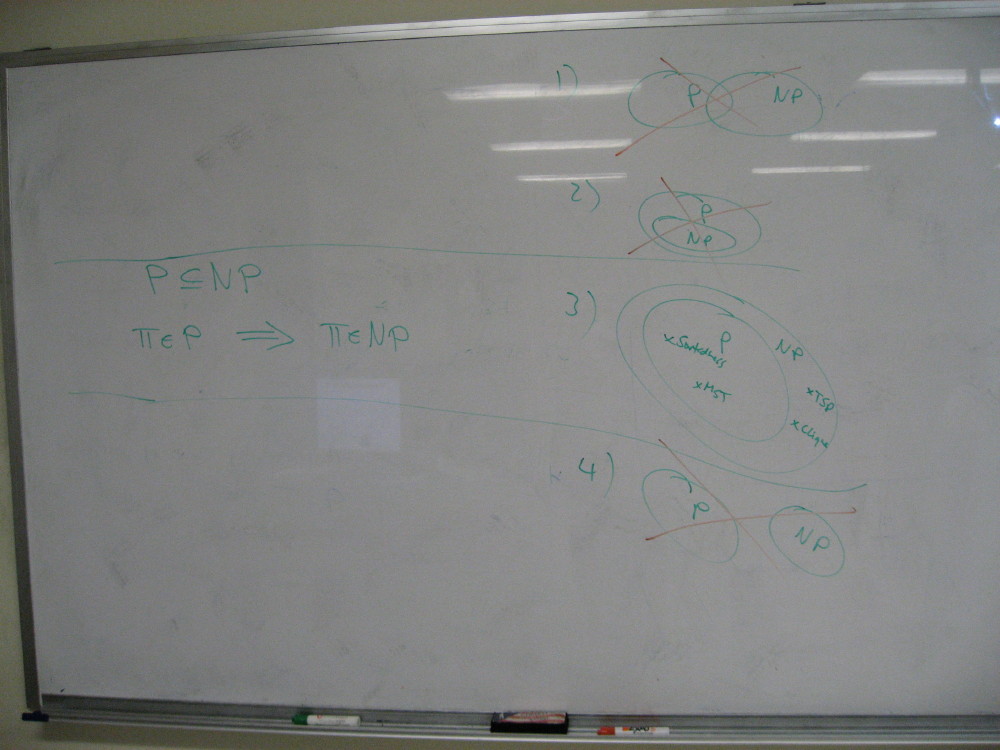 1)
P NP
2)
P
NP
P ⊆ NP
Π ∈ P ⟹ Π ∈ NP
3)
P NP
x Sortedness
x MST
x TSP
x Clique
4)
P
NP